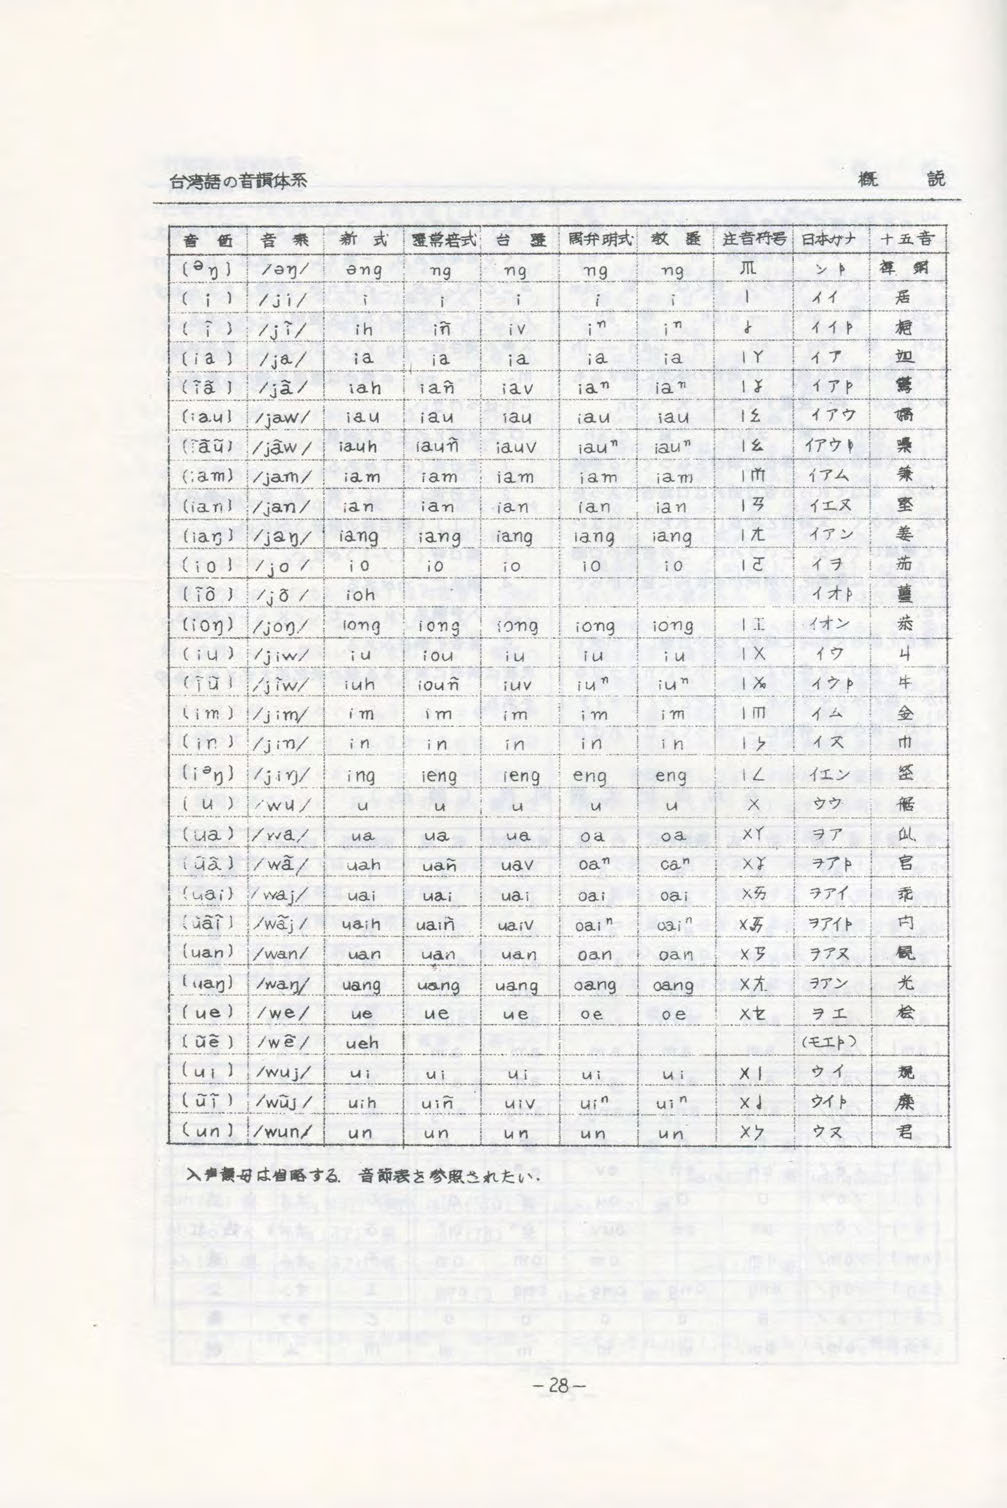 台湾語の音韻体系 概 説
音 価 音 素 新 式 台 周弁明式 教 注音符号 日本カナ 十五音
(ᵊŋ) /əŋ/ əng ng ng ng ng ㆬ ント
( i ) /ji/ i i i i i ㄧ イイ 居
( ĩ ) /jĩ/ ih iñ iv iⁿ iⁿ ㆪ イイト
(ia) /ja/ ia ia ia ia ia ㄧㄚ イア 迦
(ĩã) /jã/ iah iañ iav iaⁿ iaⁿ ㄧㆩ イアト
(iau) /jaw/ iau iau iau iau iau ㄧㄠ イアウ 嬌
(ĩãũ) /jãw/ iauh iauñ iauv iauⁿ iauⁿ ㄧㆯ イアウト
(iam) /jam/ iam iam iam iam iam ㄧㆰ イアム 兼
(ian) /jan/ ian ian ian ian ian ㄧㄢ イエヌ 堅
(iaŋ) /jaŋ/ iang iang iang iang iang ㄧㄤ イアン 姜
(io) /jo/ io io io io io ㄧㄛ イヲ 茄
(ĩõ) /jõ/ ioh イオト 薑
(ioŋ) /joŋ/ iong iong iong iong iong ㄧㆲ イオン 恭
(iu) /jiw/ iu iou iu iu iu ㄧㄨ イウ 丩
(ĩũ) /jĩw/ iuh iouñ iuv iuⁿ iuⁿ ㄧㆫ イウト 牛
(im) /jim/ im im im im im ㄧㆬ イム 金
(in) /jin/ in in in in in ㄧㄣ イヌ 巾
(iᵊŋ) /jiŋ/ ing ieng ieng eng eng ㄧㄥ イエン 経
( u ) /wu/ u u u u u ㄨ ウウ 艍
(ua) /wa/ ua ua ua oa oa ㄨㄚ ヲア
(ũã) /wã/ uah uañ uav oaⁿ oaⁿ ㄨㆩ ヲアト 官
(uai) /waj/ uai uai uai oai oai ㄨㄞ ヲアイ 乖
(ũãĩ) /wãj/ uaih uaiñ uaiv oaiⁿ oaiⁿ ㄨㆮ ヲアイト
(uan) /wan/ uan uan uan oan oan ㄨㄢ ヲアヌ 観
(uaŋ) /waŋ/ uang uang uang oang oang ㄨㄤ ヲアン 光
(ue) /we/ ue ue ue oe oe ㄨㄝ ヲエ 桧
(ũẽ) /wẽ/ ueh (モエト)
(ui) /wuj/ ui ui ui ui ui ㄨㄧ ウイ 規
(ũĩ) /wũj/ uih uiñ uiv uiⁿ uiⁿ ㄨㆪ ウイト
(un) /wun/ un un un un un ㄨㄣ ウヌ 君
入声韻母は省略する. 音節表を参照されたい.
-28-